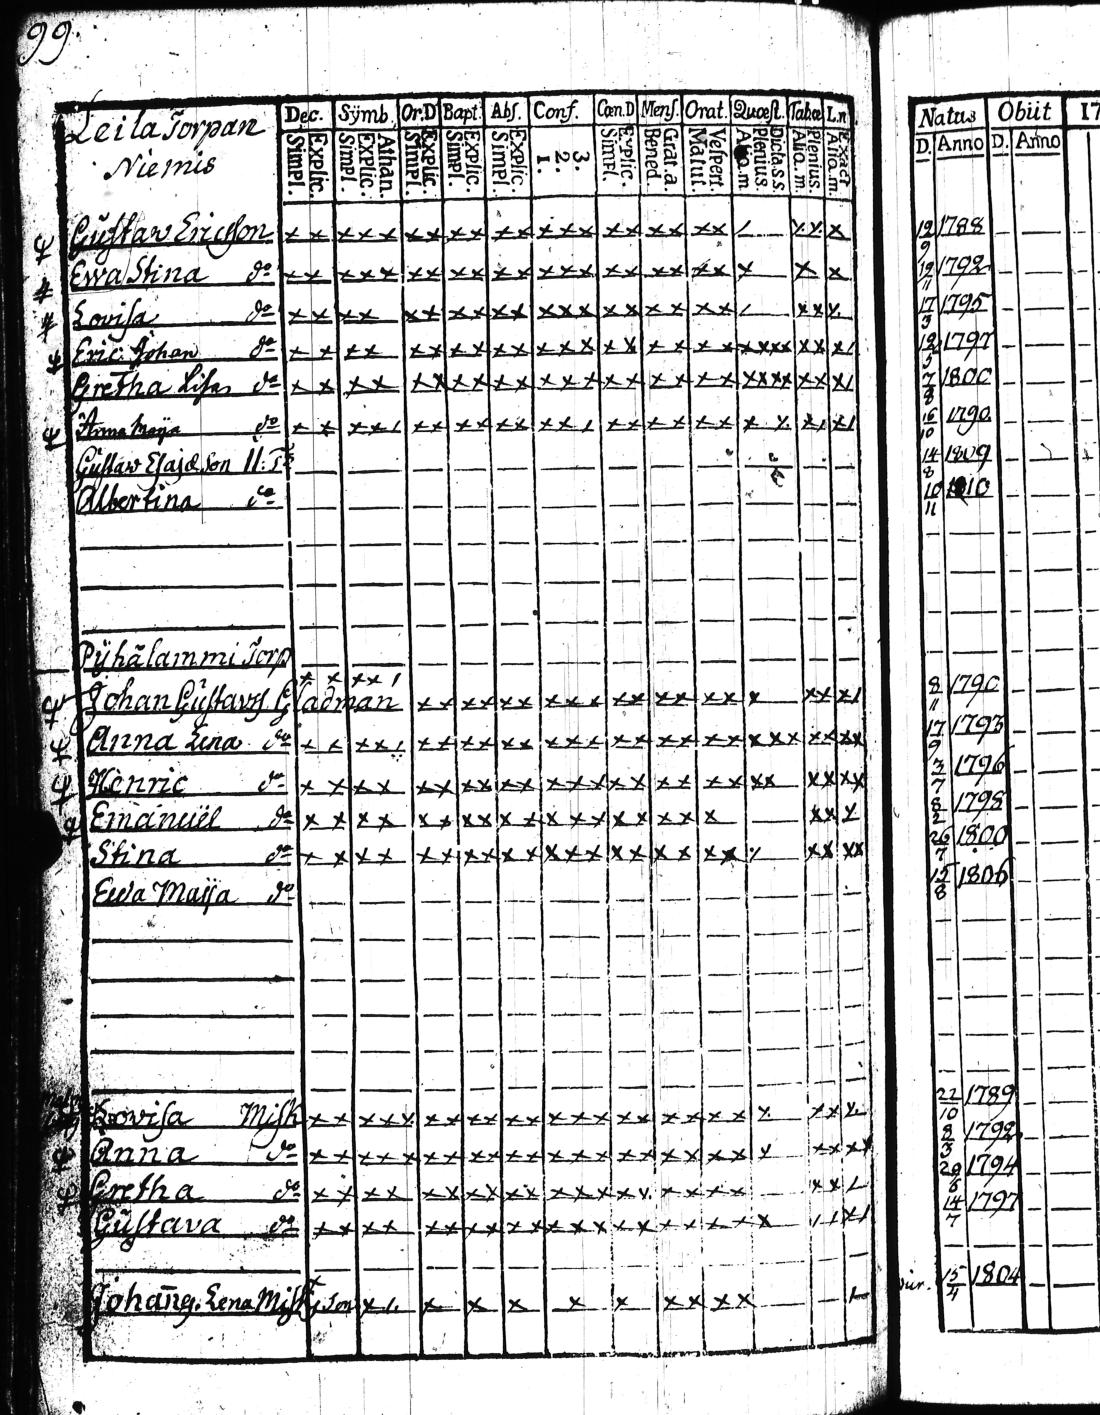 99.
Dec. Symb. Or.D Bapt. Abs. Conf. Cœn.D Mens. Orat. Quæst. Tabæ L.n Natus Obiit 17
Simpl. Explic. Simpl. Explic. Athan. Simpl. Explic. Simpl. Explic. Simpl. Explic. 1. 2. 3. Simpl. Explic. Bened. Grat.a. Matut. Vespert. Plenius. Dicta s.s. Aliq.m. Plenius. Aliq.m. Exact D. Anno D. Anno
Leila Torpan
Niemis
Gustaw Ericsson 12/9 1788
Ewa Stina do 19/11 1792
Lovisa do 17/3 1795
Eric Johan do 12/5 1797
Gretha Lisa do 7/8 1800
Anna Maja do 16/10 1790
Gustaw Esaiæ Son 14/8 1809
Albertina do 10/11 1810
Pyhälammi Torp
Johan Gustavs. Gladman 8/11 1790
Anna Lena do 17/9 1793
Henric do 3/7 1796
Emanuel do 8/2 1798
Stina do 26/7 1800
Ewa Maija do 15/8 1806
Lovisa Misk 22/10 1789
Anna do 8/3 1792
Gretha do 29/8 1794
Gustava do 14/7 1797
Johan g. Lena Misks Son 15/4 1804